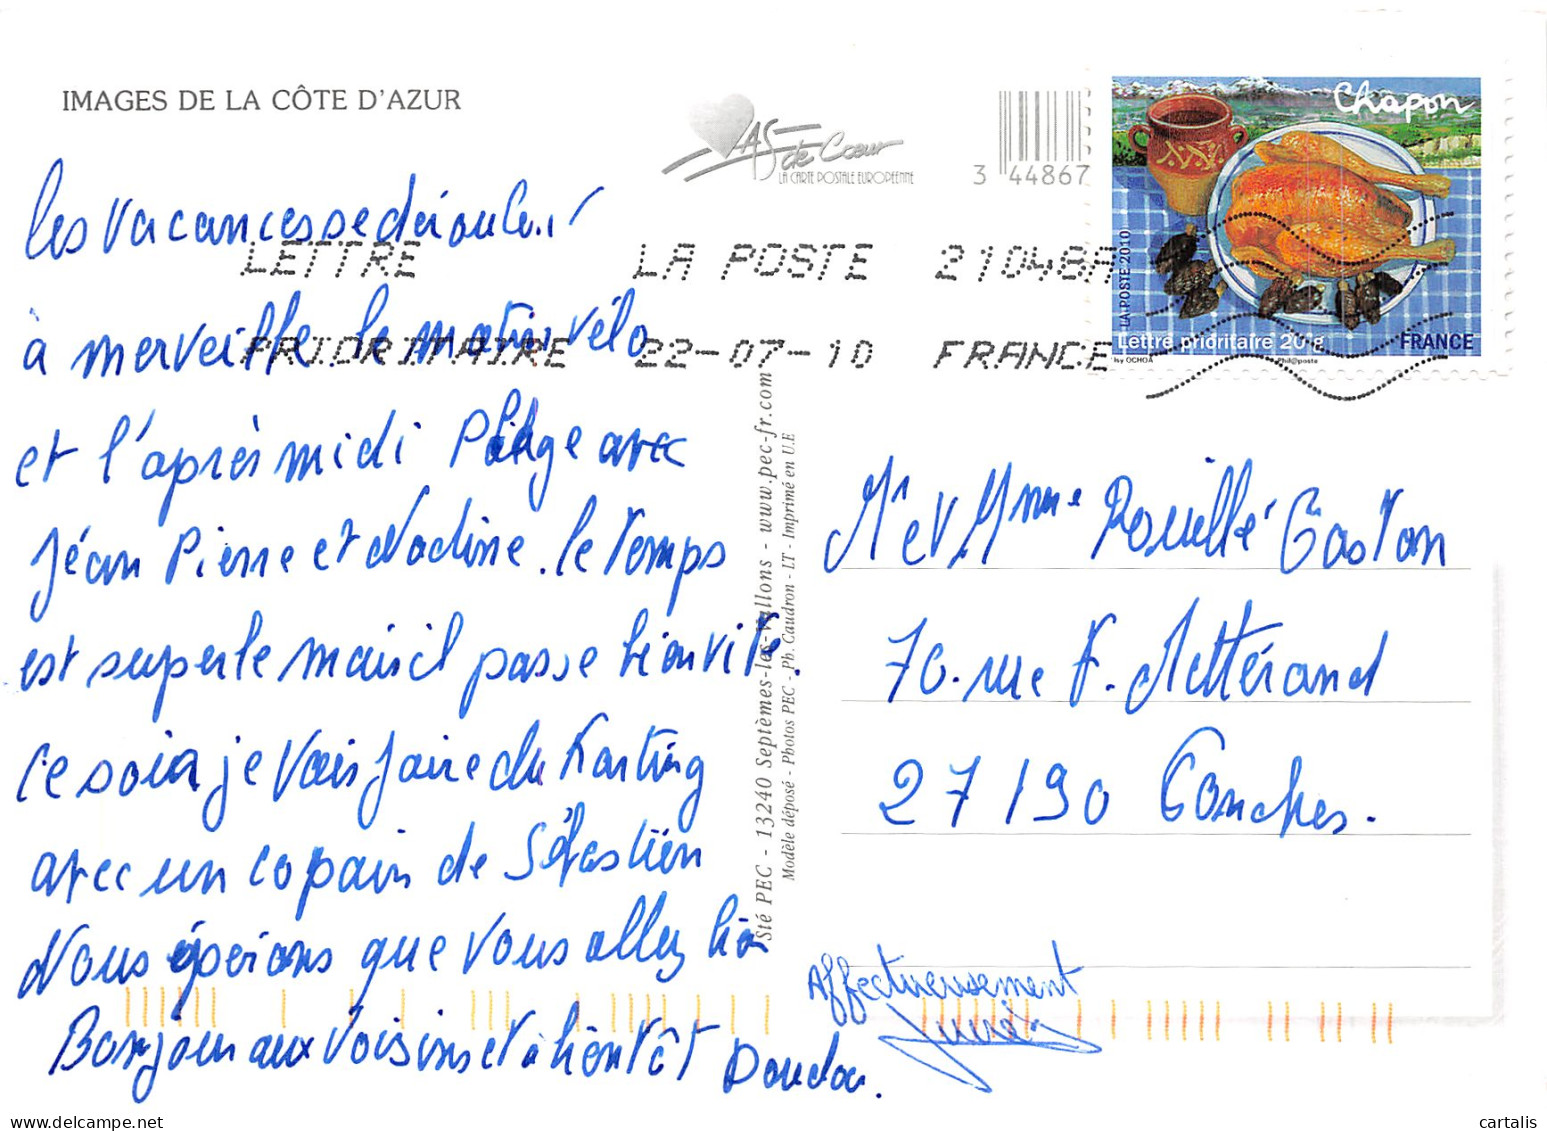 IMAGES DE LA CÔTE D'AZUR
AS de Cœur
LA CARTE POSTALE EUROPÉENNE
3 44867
Chapon
LA POSTE 2010
Lettre prioritaire 20 g
FRANCE
by OCHOA
Phil@poste
LETTRE LA POSTE 21048A
PRIORITAIRE 22-07-10 FRANCE
les vacances se déroulent
à merveille le matin vélo
et l'après midi Plage avec
Jéan Pierre et Nadine. le temps
est superle mais il passe bien vite.
Ce soir je vais faire du Karting
avec un copain de Sébastien
Nous éperions que vous allez bien
Bonjour aux voisins et à bientôt Doudou.
Sté PEC - 13240 Septèmes-les-Vallons - www.pec-fr.com
Modèle déposé - Photos PEC - Ph. Caudron - LT - Imprimé en U.E
Mr et Mme Rouillé Gaston
70. rue F. Mittérand
27190 Conches.
Affectueusement
cartalis